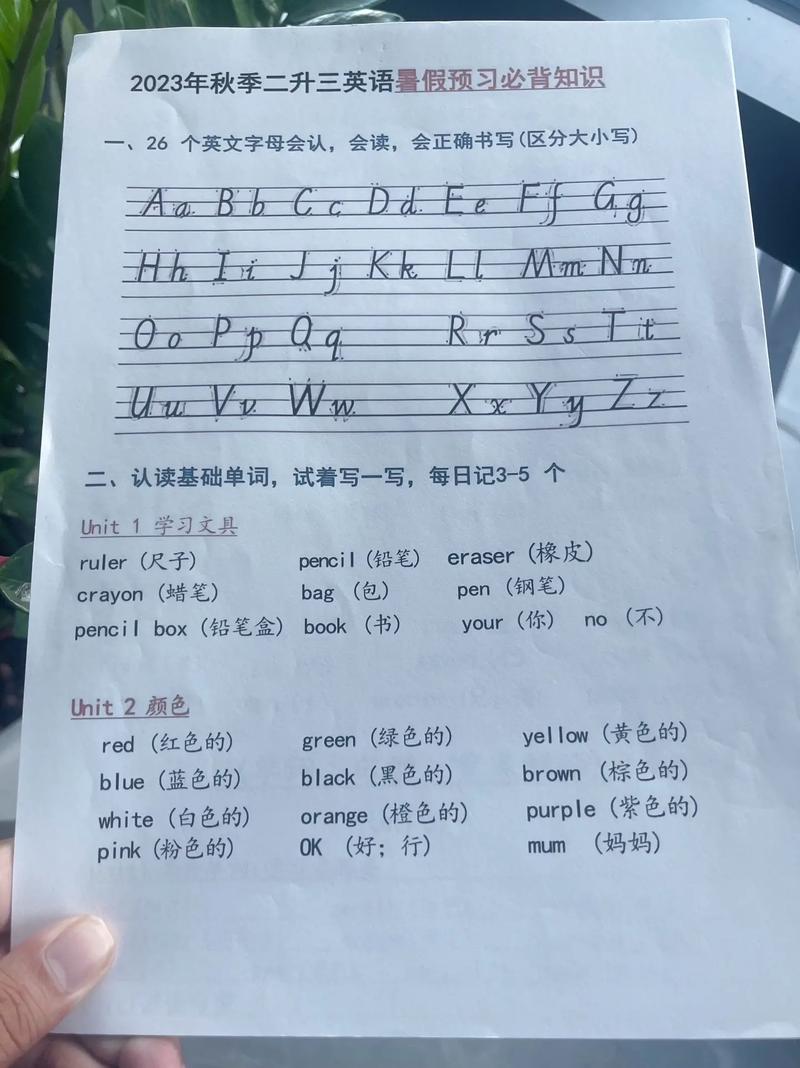 2023年秋季二升三英语暑假预习必背知识
一、26 个英文字母会认，会读，会正确书写(区分大小写)
Aa Bb Cc Dd Ee Ff Gg
Hh Ii Jj Kk Ll Mm Nn
Oo Pp Qq Rr Ss Tt
Uu Vv Ww Xx Yy Zz
二、认读基础单词，试着写一写，每日记3-5 个
Unit 1 学习文具
ruler（尺子） pencil（铅笔） eraser（橡皮）
crayon（蜡笔） bag （包） pen（钢笔）
pencil box（铅笔盒） book （书） your（你） no （不）
Unit 2 颜色
red （红色的） green（绿色的） yellow（黄色的）
blue（蓝色的） black（黑色的） brown （棕色的）
white（白色的） orange（橙色的） purple（紫色的）
pink（粉色的） OK （好；行） mum （妈妈）